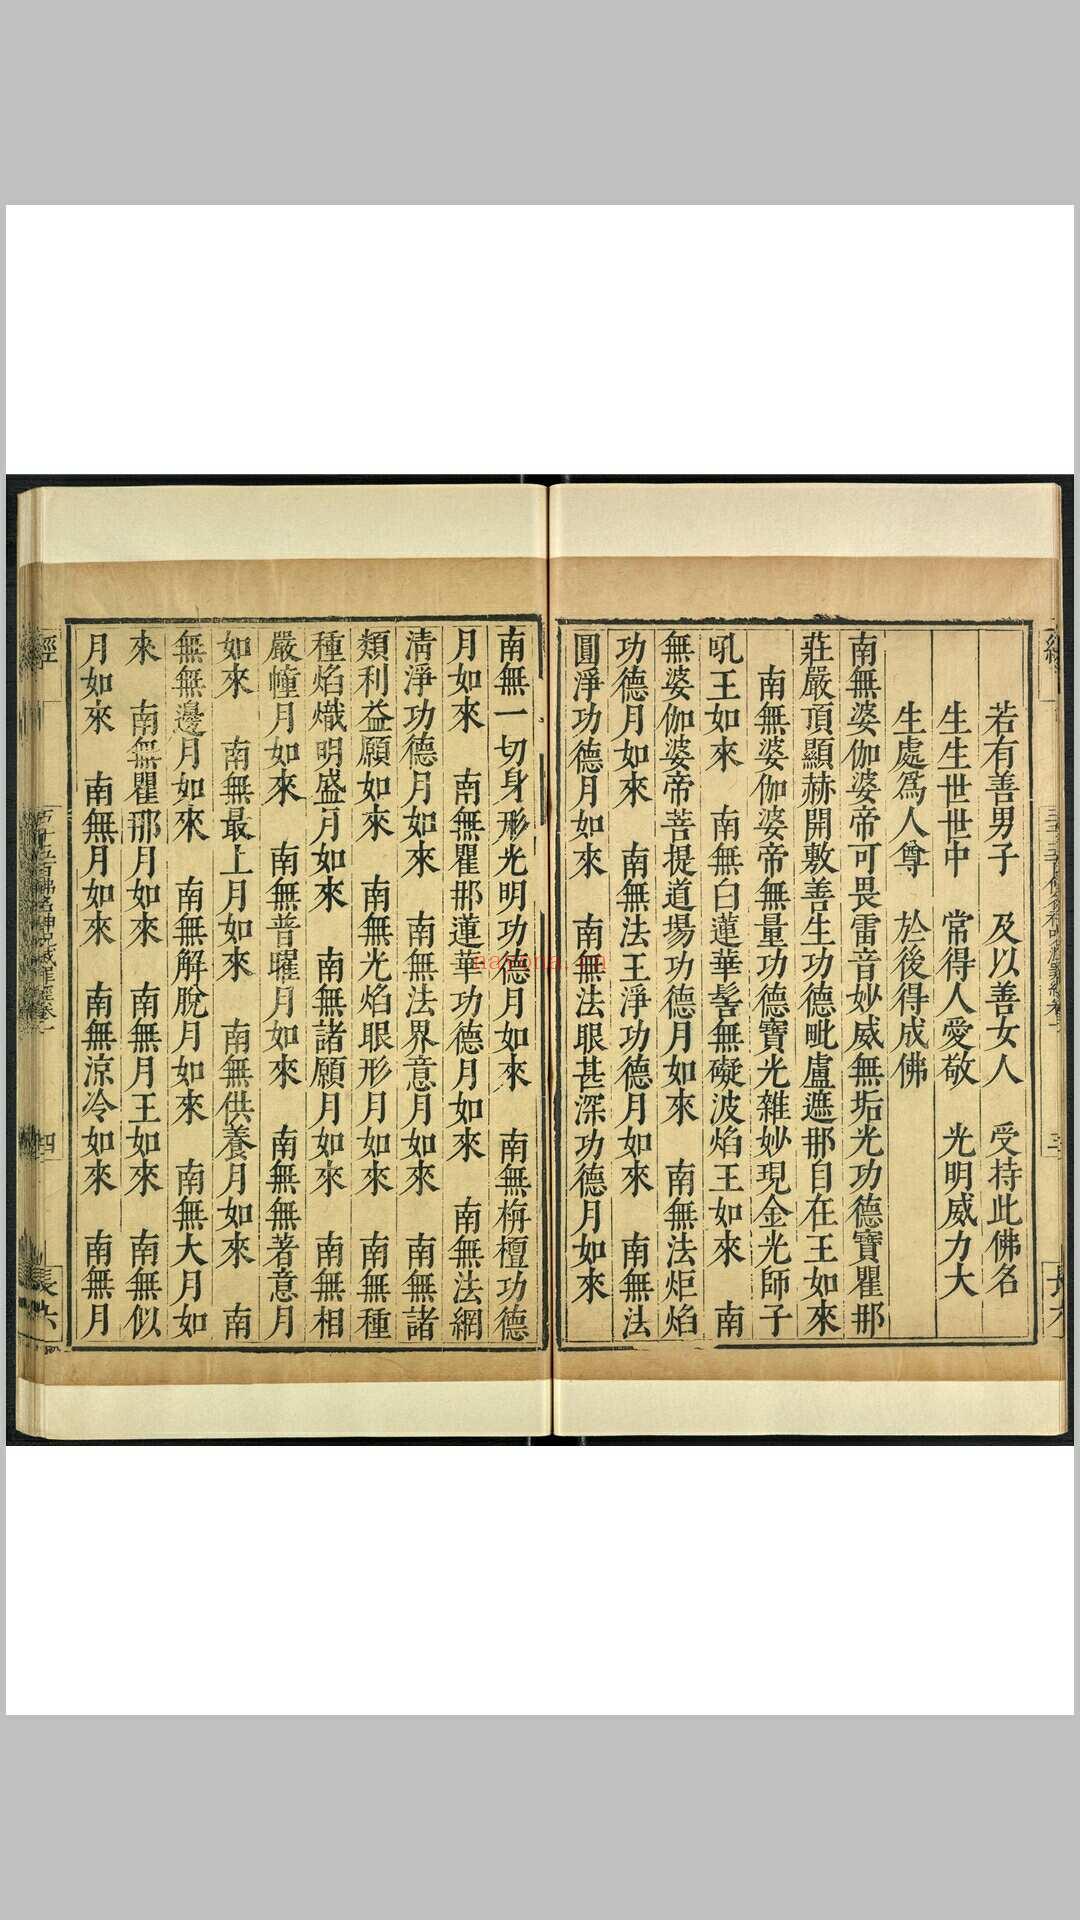 若有善男子　及以善女人　受持此佛名
生生世世中　常得人愛敬　光明威力大
生處爲人尊　於後得成佛
南無婆伽婆帝可畏雷音妙威無垢光功德寶瞿那
莊嚴頂顯赫開敷善生功德毗盧遮那自在王如來
南無婆伽婆帝無量功德寶光雜妙現金光師子
吼王如來　南無白蓮華髻無礙波焰王如來　南
無婆伽婆帝菩提道場功德月如來　南無法炬焰
功德月如來　南無法王淨功德月如來　南無法
圓淨功德月如來　南無法眼甚深功德月如來
南無一切身形光明功德月如來　南無栴檀功德
月如來　南無瞿那蓮華功德月如來　南無法網
清淨功德月如來　南無法界意月如來　南無諸
類利益願如來　南無光焰眼形月如來　南無種
種焰熾明盛月如來　南無諸願月如來　南無相
嚴幢月如來　南無普曜月如來　南無無著意月
如來　南無最上月如來　南無供養月如來　南
無無邊月如來　南無解脫月如來　南無大月如
來　南無瞿那月如來　南無月王如來　南無似
月如來　南無月如來　南無涼冷如來　南無月
經
五千五百佛名神呪滅罪經卷一
四
長六
nayona.cn